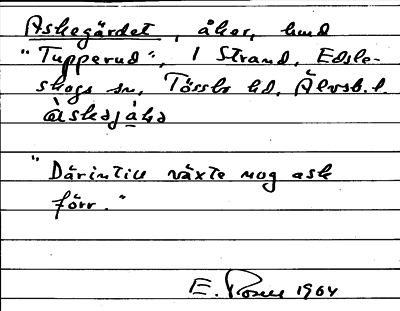 Askegärdet, åker, hmd
"Tupperud", 1 Strand, Edsle-
skogs sn, Tössbo hd, Älvsb. l.
àskəjáḷə
"Därintill växte nog ask
förr."
E. Rosell 1964